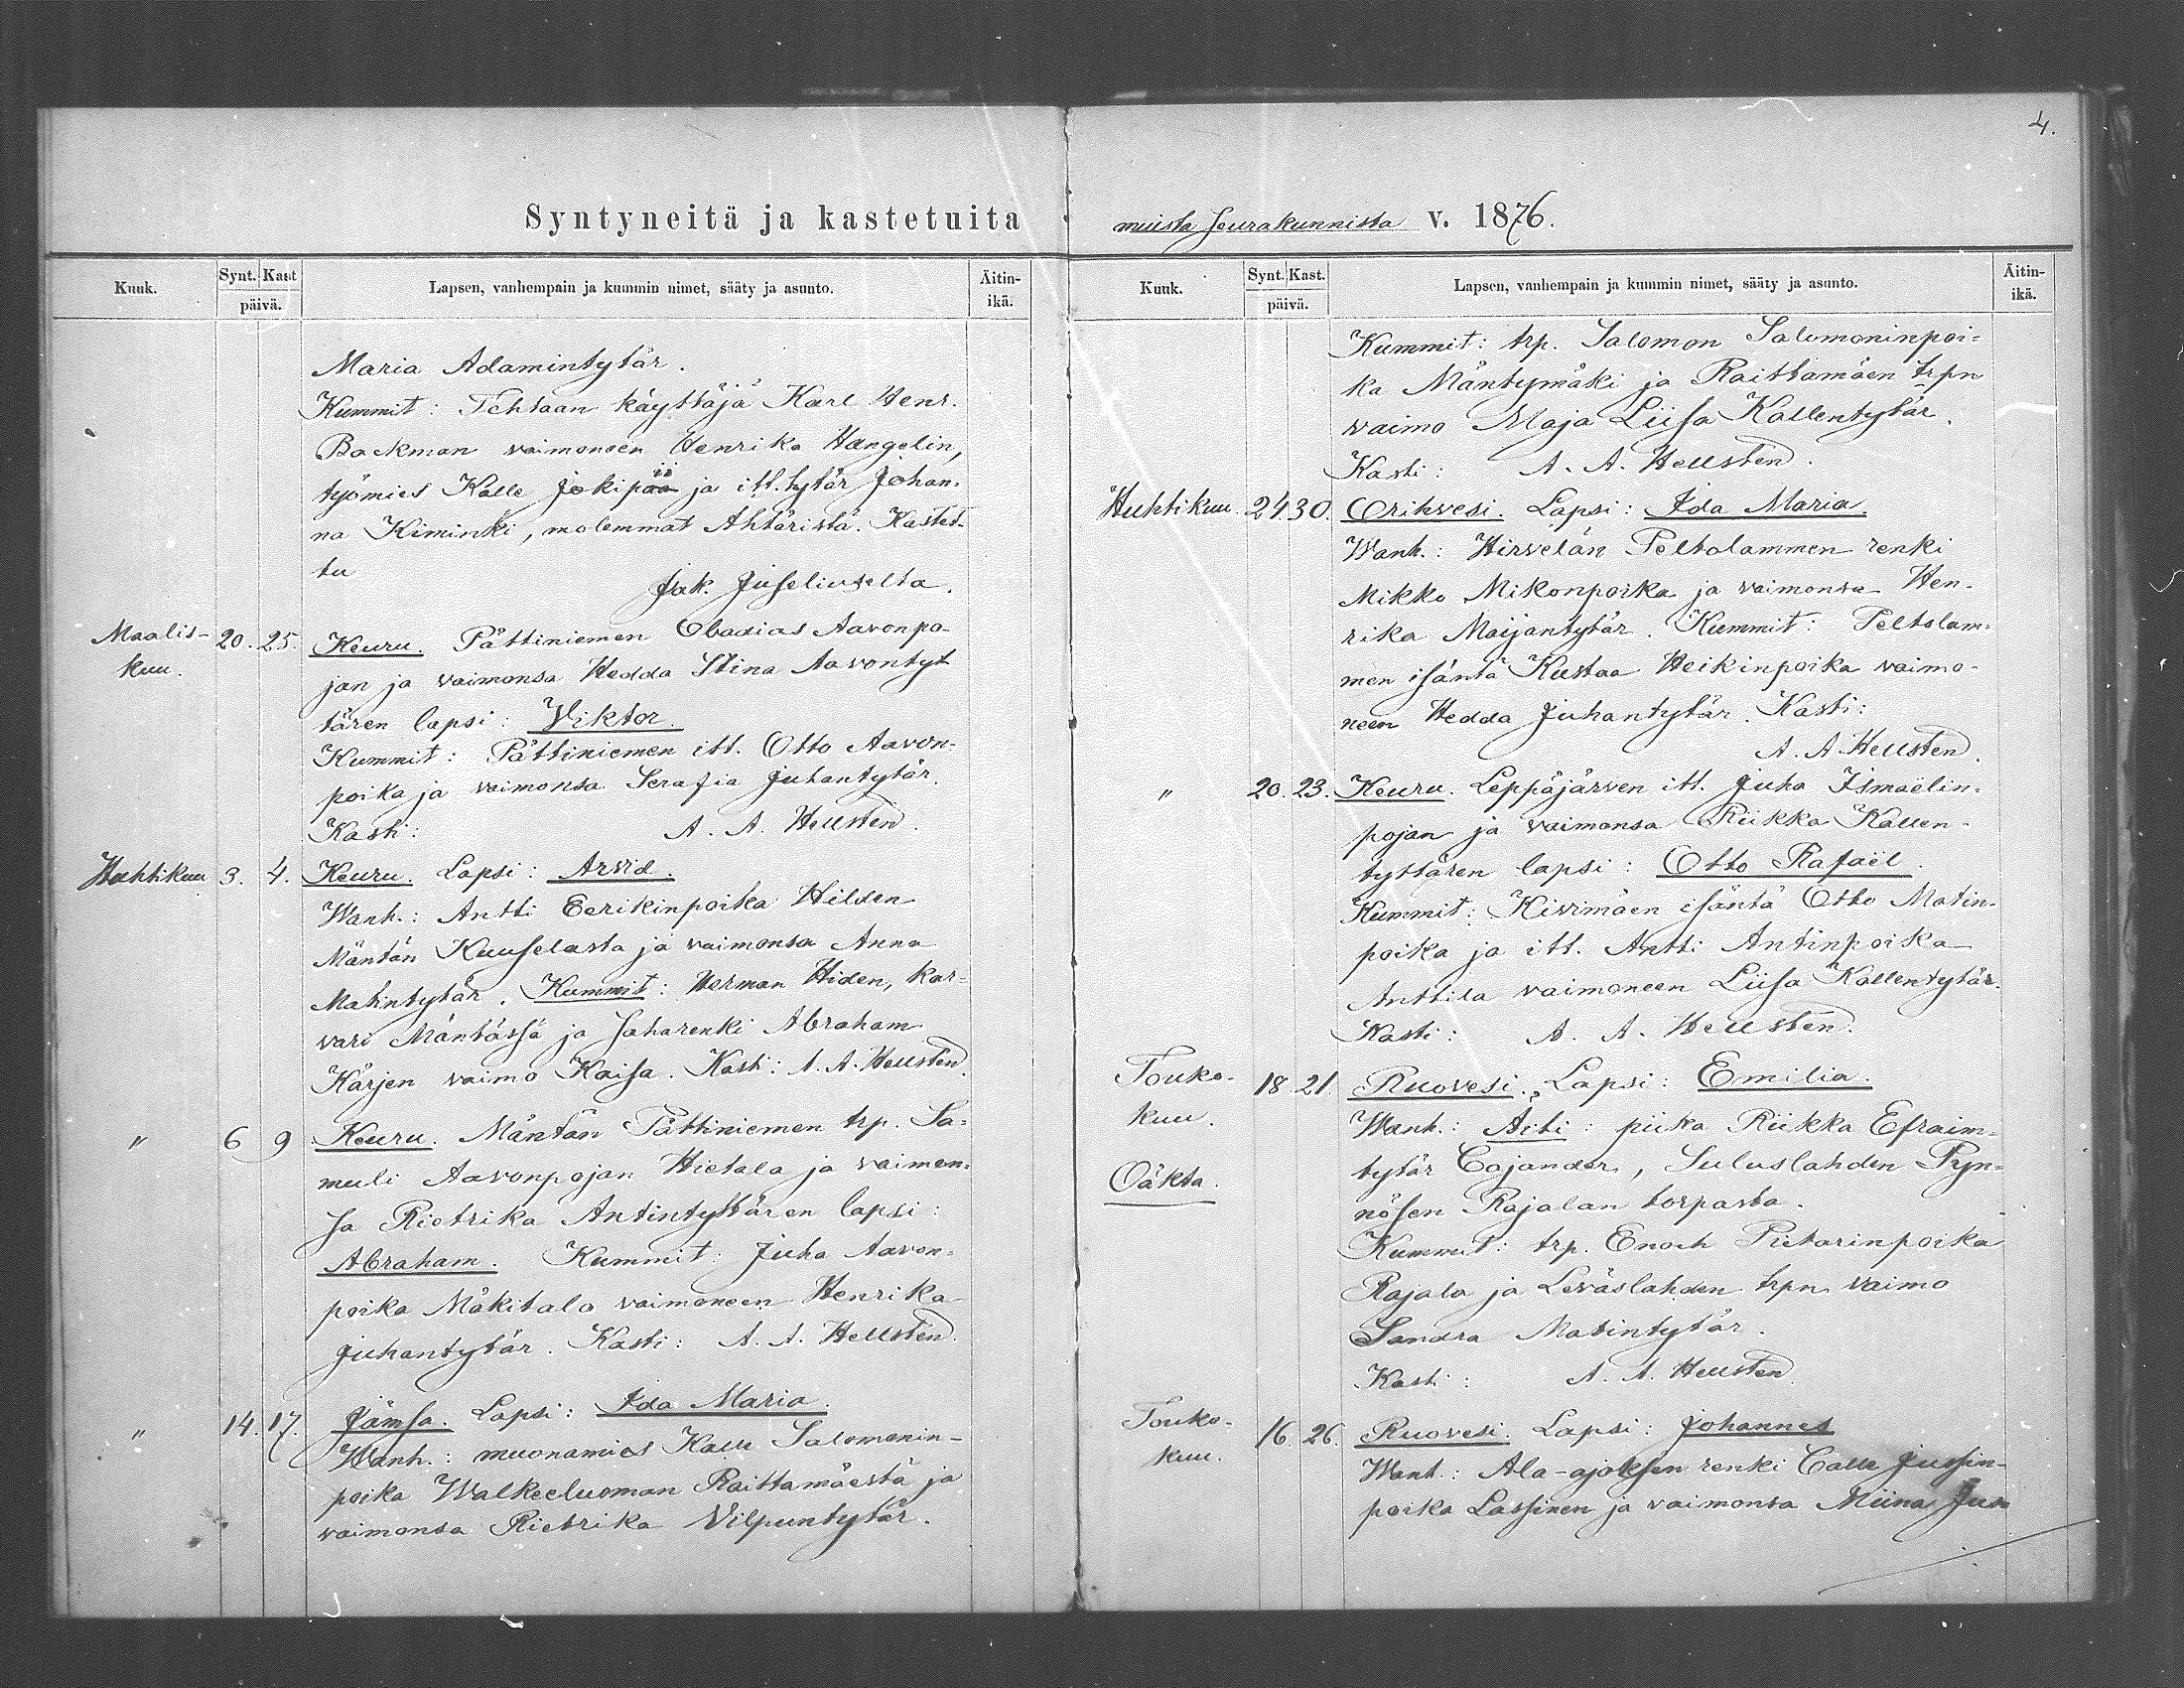 4.
Syntyneitä ja kastetuita
Kuuk.
Synt. Kast
päivä.
Lapsen, vanhempain ja kummin nimet, sääty ja asunto.
Äitin-
ikä.
Maria Adamintytär.
Kummit: Tehtaan käyttäjä Karl Henr.
Backman vaimoneen Henrika Hangelin,
työmies Kalle Jokipii ja itt. tytär Johan-
na Kiminki, molemmat Ahtäristä. Kastet-
tu
Jak. Juseliukselta.
Maalis- 20. 25. Keuru. Pättiniemen Obadias Aavonpo-
kuu. jan ja vaimonsa Hedda Stina Aavontyt
tären lapsi: Viktor.
Kummit: Pättiniemen itt. Otto Aavon-
poika ja vaimonsa Serafia Juhantytär.
Kasti: A. A. Hellsten.
Huhtikuu 3. 4. Keuru. Lapsi: Arvid.
Wanh.: Antti Eerikinpoika Hilden
Mäntän Kuuselasta ja vaimonsa Anna
Matintytär. Kummit: Herman Hiden, kar-
vari Mäntässä ja saharenki Abraham
Härjen vaimo Kaisa. Kasti: A. A. Hellsten.
" 6 9 Keuru. Mäntän Pättiniemen trp. Sa-
muli Aavonpojan Hietala ja vaimon-
sa Rietrika Antintyttären lapsi:
Abraham. Kummit: Juha Aavon-
poika Mäkitalo vaimoneen Henrika
Juhantytär. Kasti: A. A. Hellsten.
" 14. 17. Jämsa. Lapsi: Ida Maria.
Wanh.: muonamies Kalle Salomonin-
poika Walkeeluoman Raittamäestä ja
vaimonsa Rietrika Vilpuntytär.
muista seurakunnista v. 1876.
Kuuk.
Synt. Kast.
päivä.
Lapsen, vanhempain ja kummin nimet, sääty ja asunto.
Äitin-
ikä.
Kummit: trp. Salomon Salomoninpoi-
ka Mäntymäki ja Raittamäen trpn
vaimo Maja Liisa Kallentytär.
Kasti: A. A. Hellsten.
Huhtikuu. 24. 30. Orihvesi. Lapsi: Ida Maria.
Wanh.: Hirvelän Peltolammen renki
Mikko Mikonpoika ja vaimonsa Hen-
rika Maijantytär. Kummit: Peltolam-
men isäntä Kustaa Heikinpoika vaimo-
neen Hedda Juhantytär. Kasti:
A. A. Hellsten.
" 20. 23. Keuru. Leppäjärven itt. Juha Ismaëlin-
pojan ja vaimonsa Riikka Kallen-
tyttären lapsi: Otto Rafaël.
Kummit: Kivimäen isäntä Otto Matin-
poika ja itt. Antti Antinpoika
Anttila vaimoneen Liisa Kallentytär.
Kasti: A. A. Hellsten.
Touko- 18 21. Ruovesi. Lapsi: Emilia.
kuu. Wanh.: Äiti: piika Riikka Efraim-
tytär Cajander, Suluslahden Pyn-
Oäkta. nösen Rajalan torpasta.
Kummit: trp. Enoch Pietarinpoika
Rajala ja Leväslahden trpn vaimo
Sandra Matintytär.
Kasti: A. A. Hellsten.
Touko- 16. 26. Ruovesi. Lapsi: Johannes
kuu. Wanh.: Ala-ajoksen renki Calle Jussin-
poika Lassinen ja vaimonsa Miina Jus